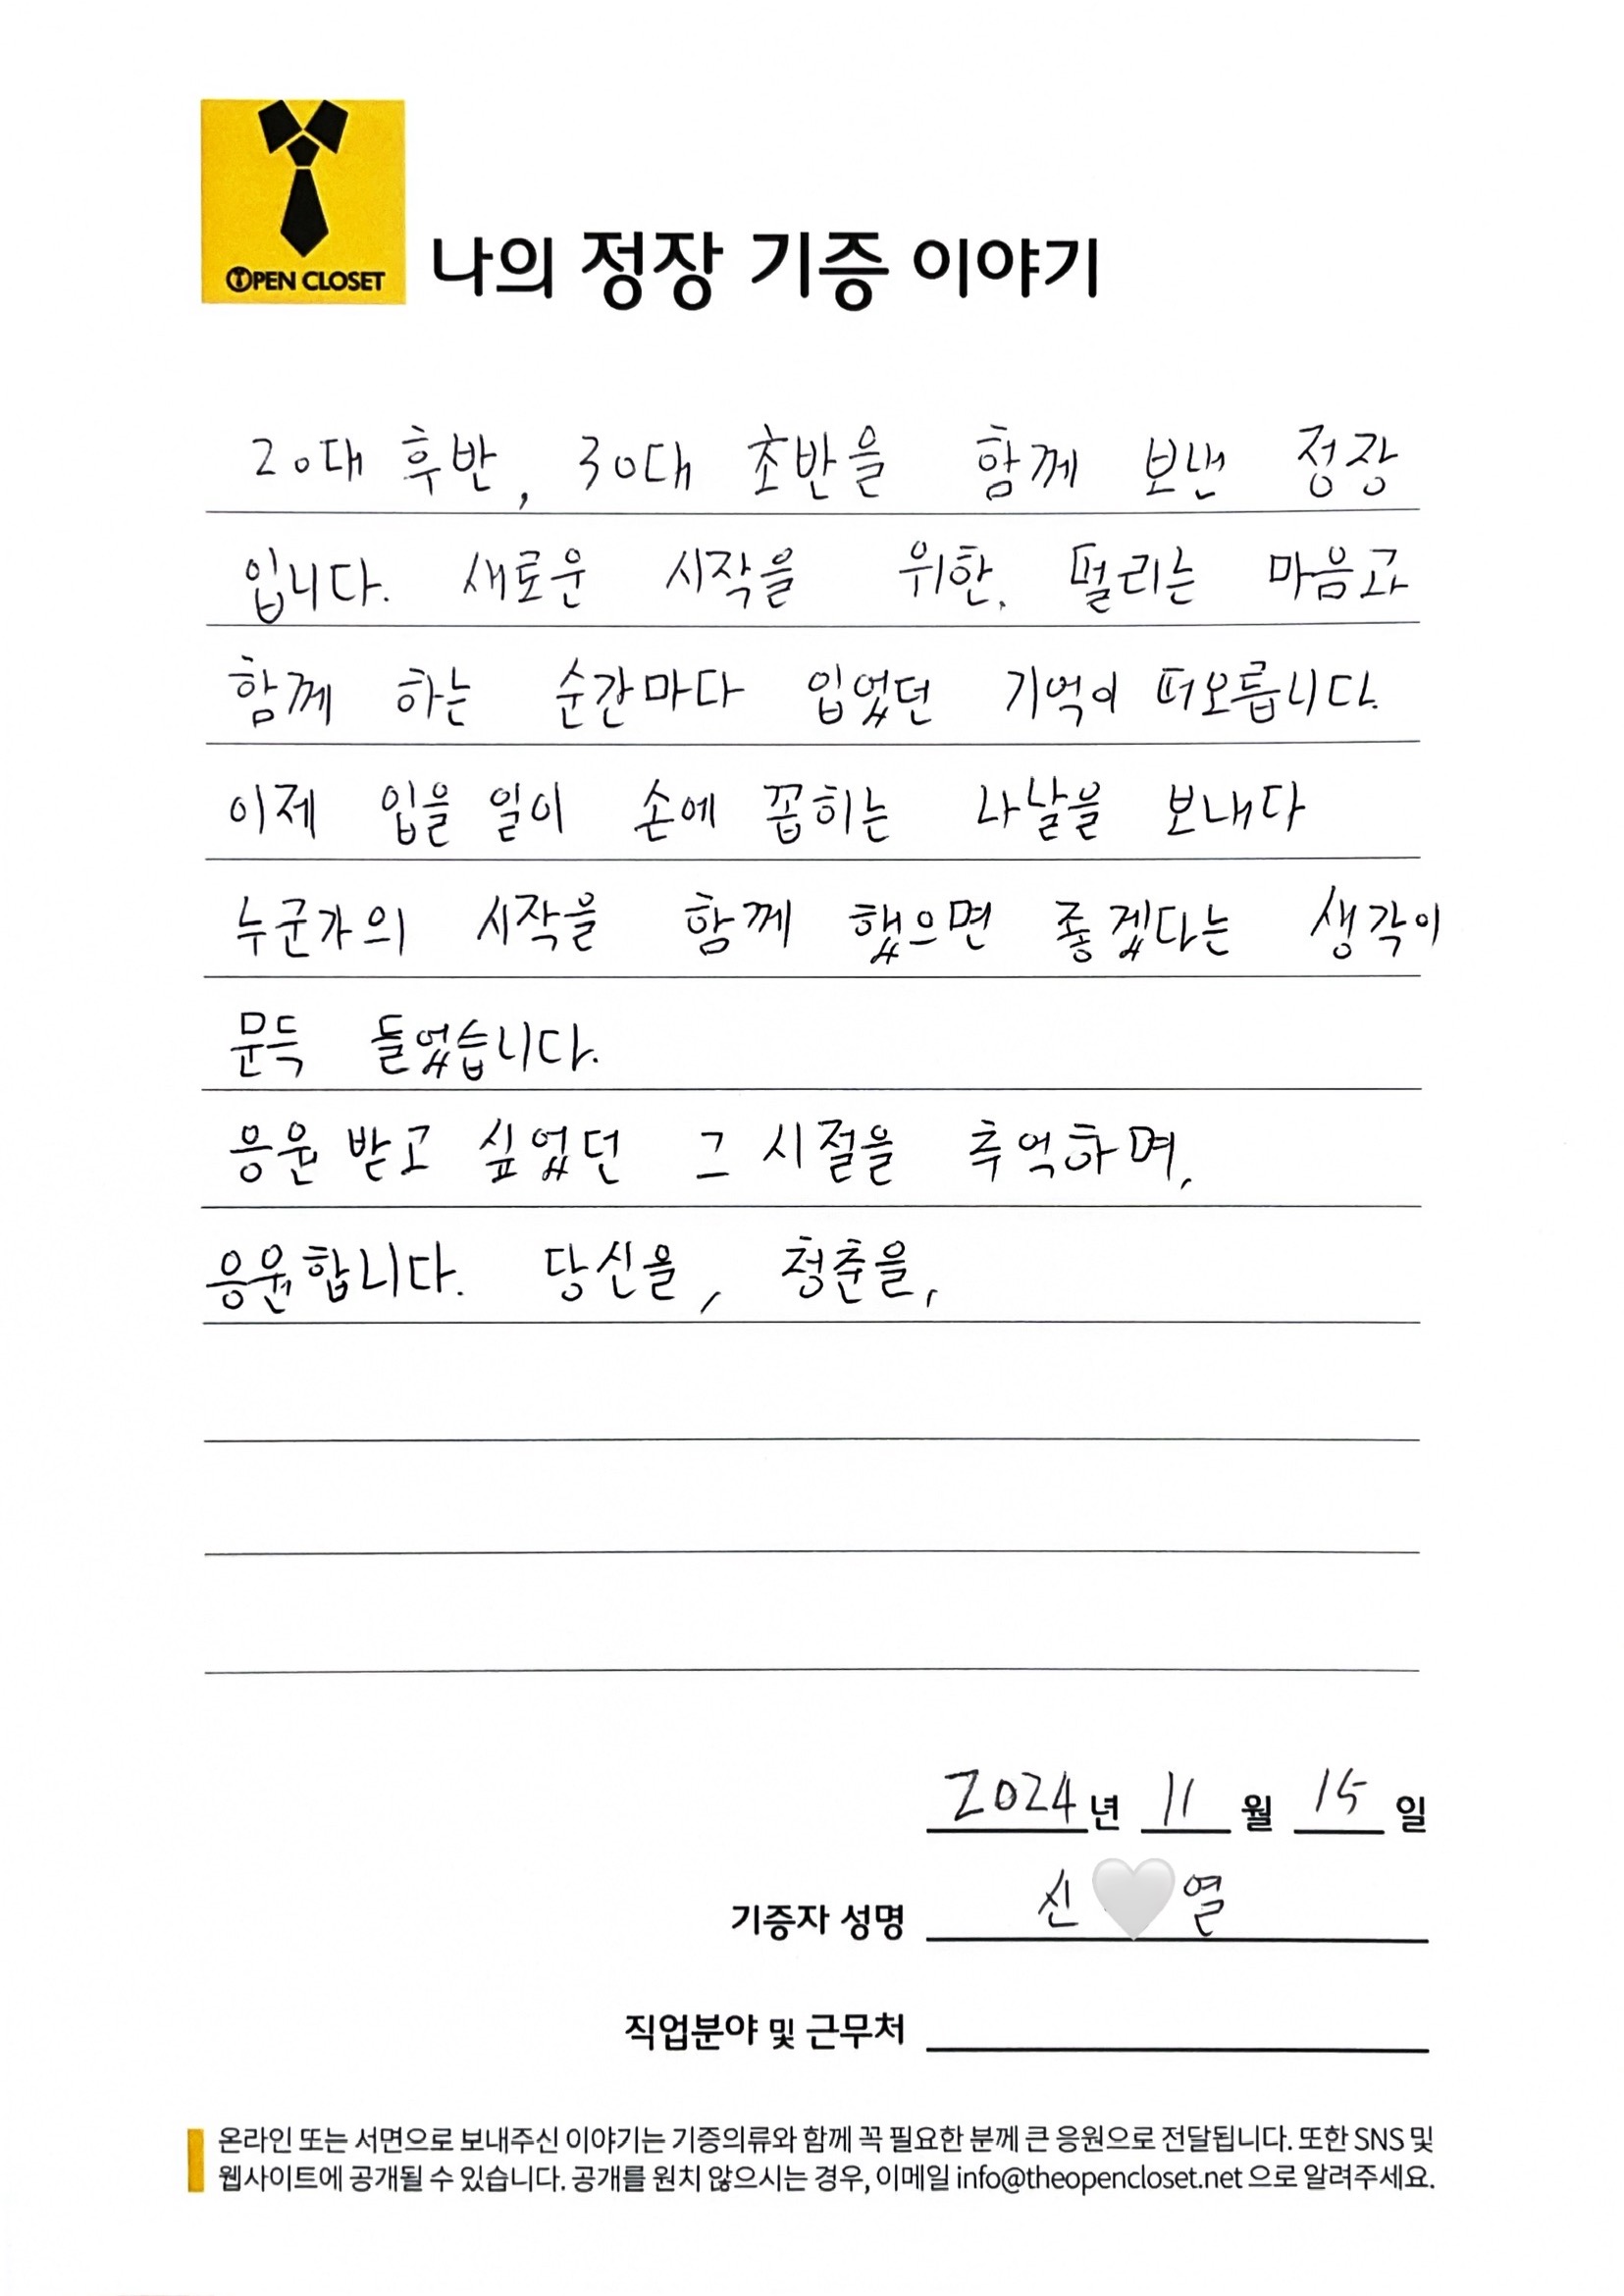 OPEN CLOSET
나의 정장 기증 이야기
20대 후반, 30대 초반을 함께 보낸 정장
입니다. 새로운 시작을 위한. 떨리는 마음과
함께 하는 순간마다 입었던 기억이 떠오릅니다.
이제 입을 일이 손에 꼽히는 나날을 보내다
누군가의 시작을 함께 했으면 좋겠다는 생각이
문득 들었습니다.
응원 받고 싶었던 그 시절을 추억하며,
응원합니다. 당신을, 청춘을,
2024년 11월 15일
기증자 성명 신🤍열
직업분야 및 근무처
온라인 또는 서면으로 보내주신 이야기는 기증의류와 함께 꼭 필요한 분께 큰 응원으로 전달됩니다. 또한 SNS 및
웹사이트에 공개될 수 있습니다. 공개를 원치 않으시는 경우, 이메일 info@theopencloset.net 으로 알려주세요.